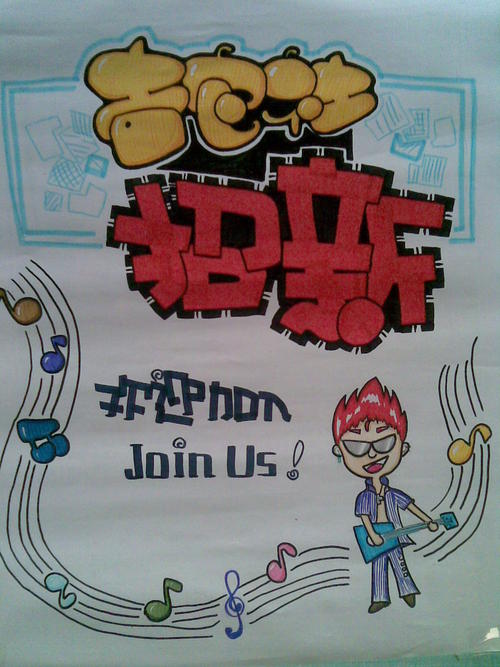 吉它社
招新
欢迎加入
Join Us!